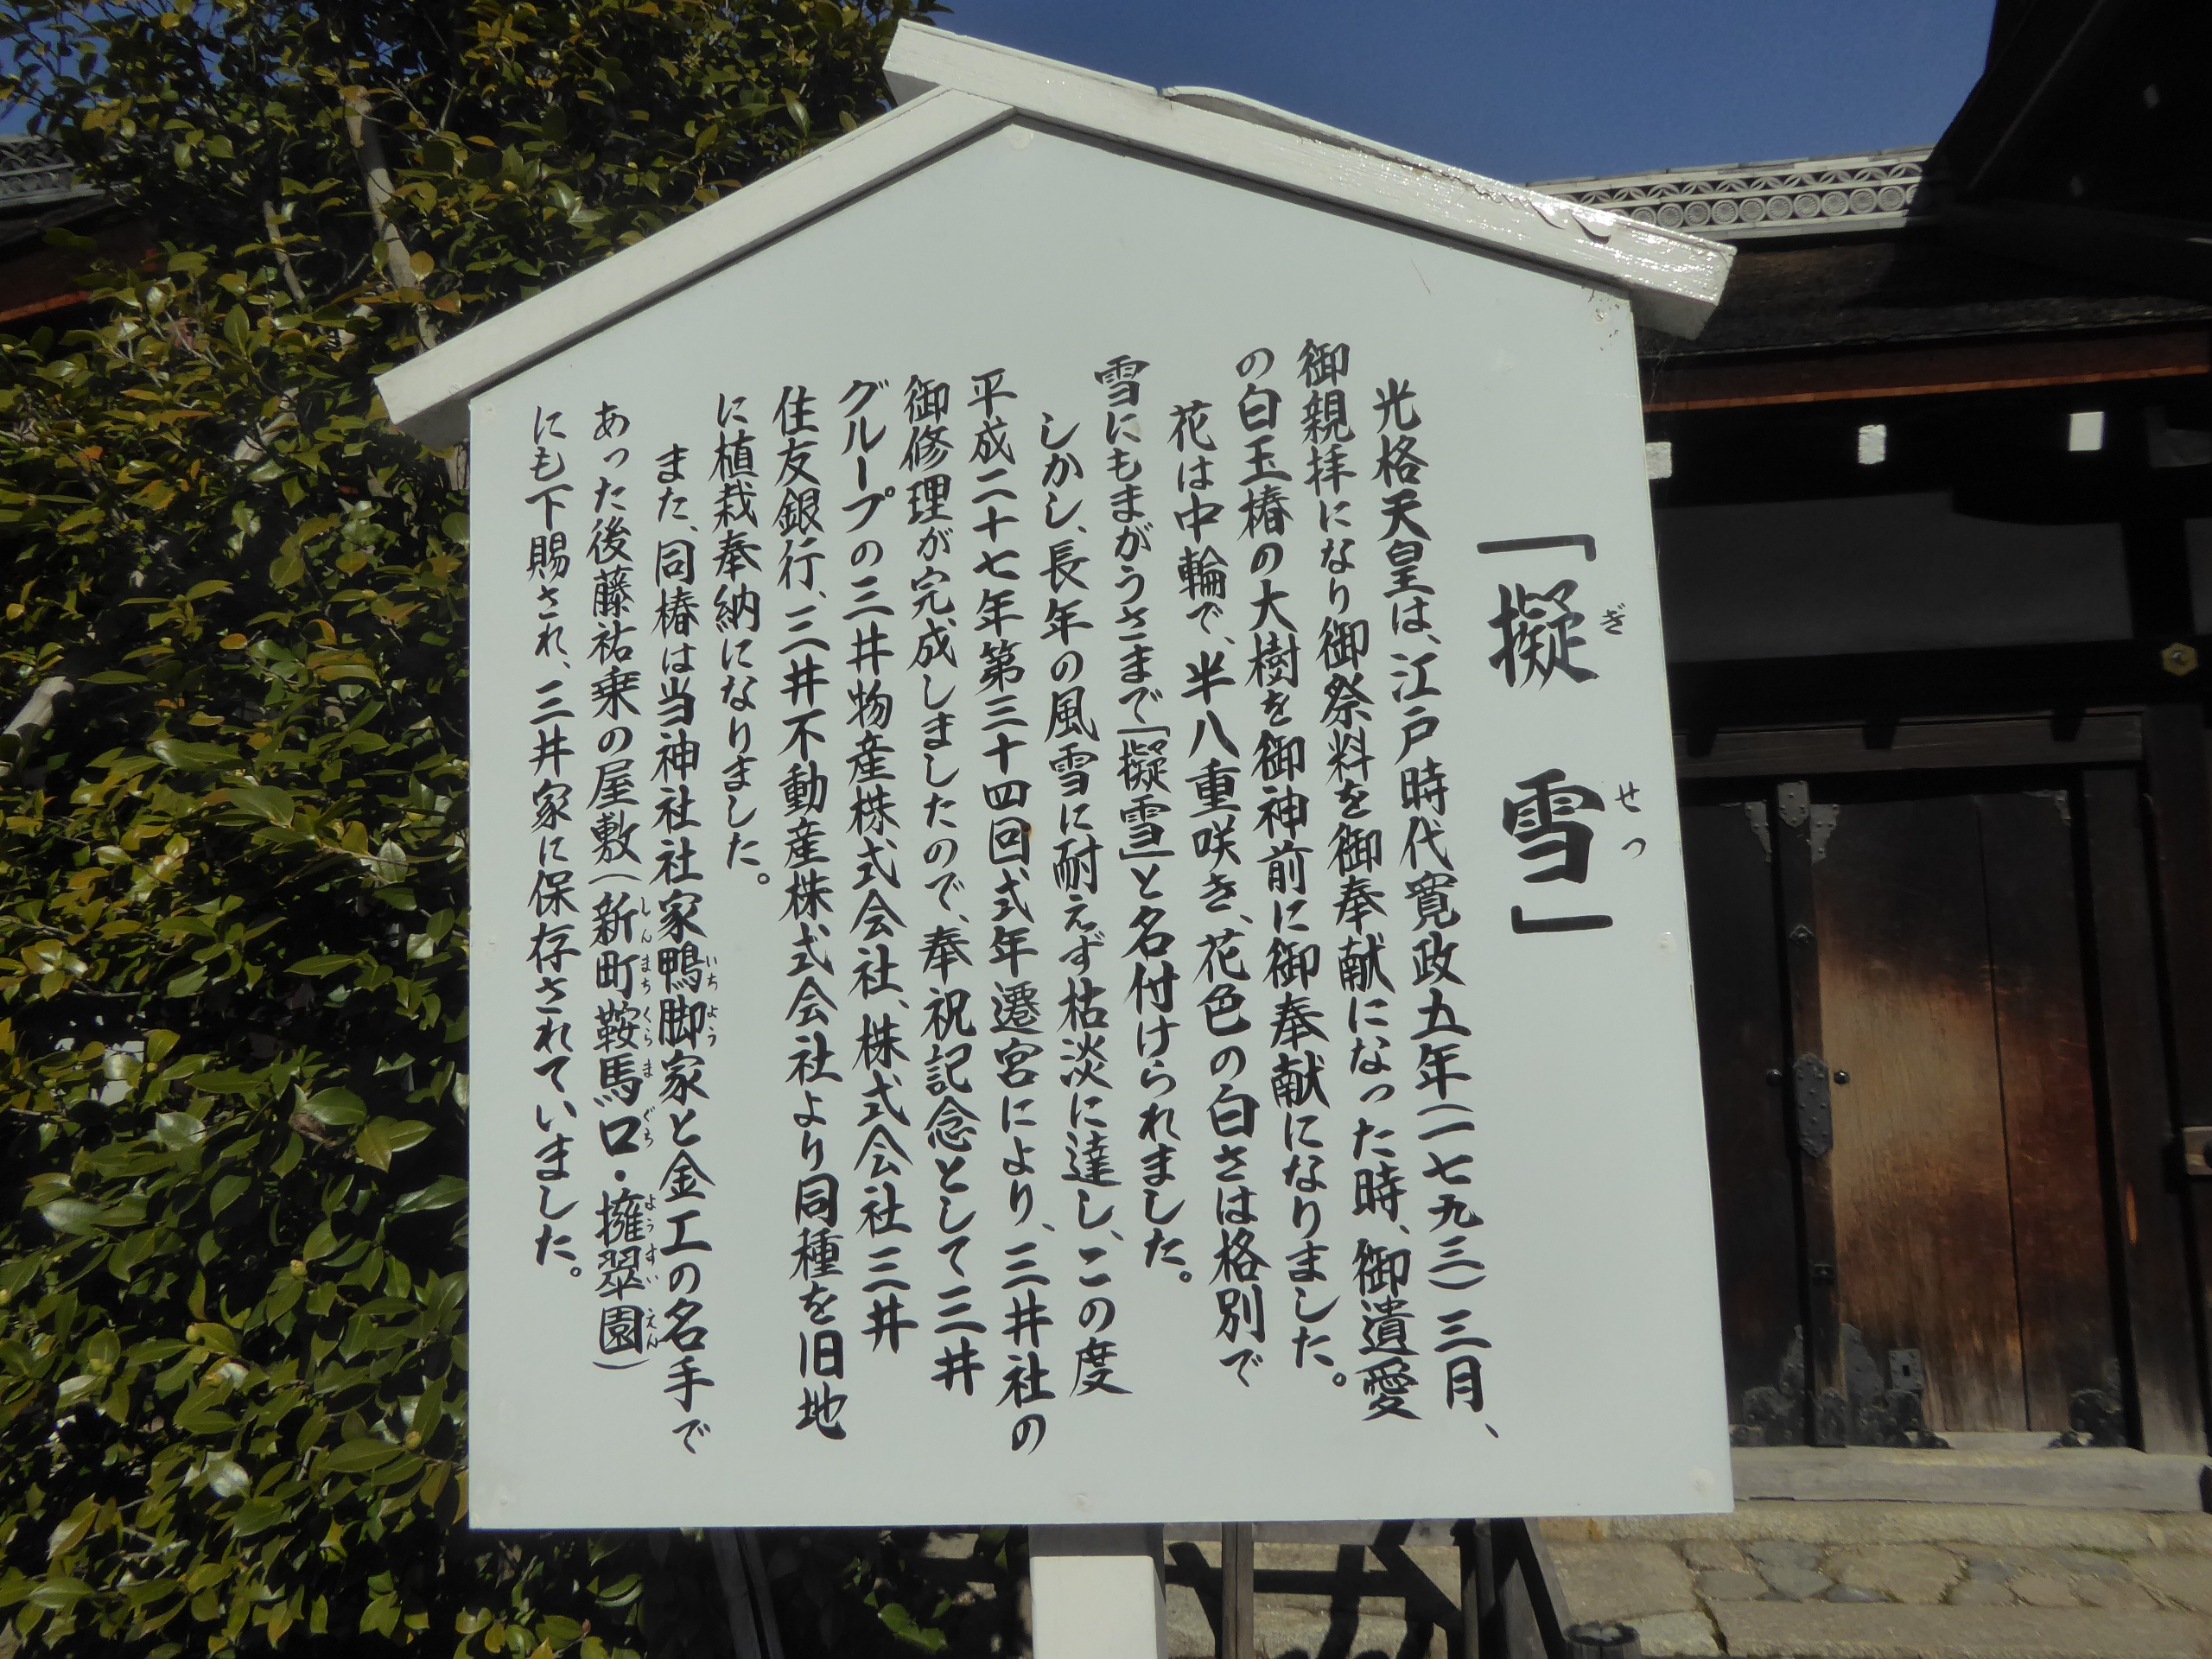 「擬雪」
ぎせつ
光格天皇は、江戸時代寛政五年(一七九三)三月、
御親拝になり御祭料を御奉献になった時、御遺愛
の白玉椿の大樹を御神前に御奉献になりました。
花は中輪で、半八重咲き、花色の白さは格別で
雪にもまがうさまで「擬雪」と名付けられました。
しかし、長年の風雪に耐えず枯淡に達し、この度
平成二十七年第三十四回式年遷宮により、三井社の
御修理が完成しましたので、奉祝記念として三井
グループの三井物産株式会社、株式会社三井
住友銀行、三井不動産株式会社より同種を旧地
に植栽奉納になりました。
また、同椿は当神社社家鴨脚家と金工の名手で
いちよう
あった後藤祐乗の屋敷(新町鞍馬口・擁翠園)
しんまちくらまぐち ようすいえん
にも下賜され、三井家に保存されていました。